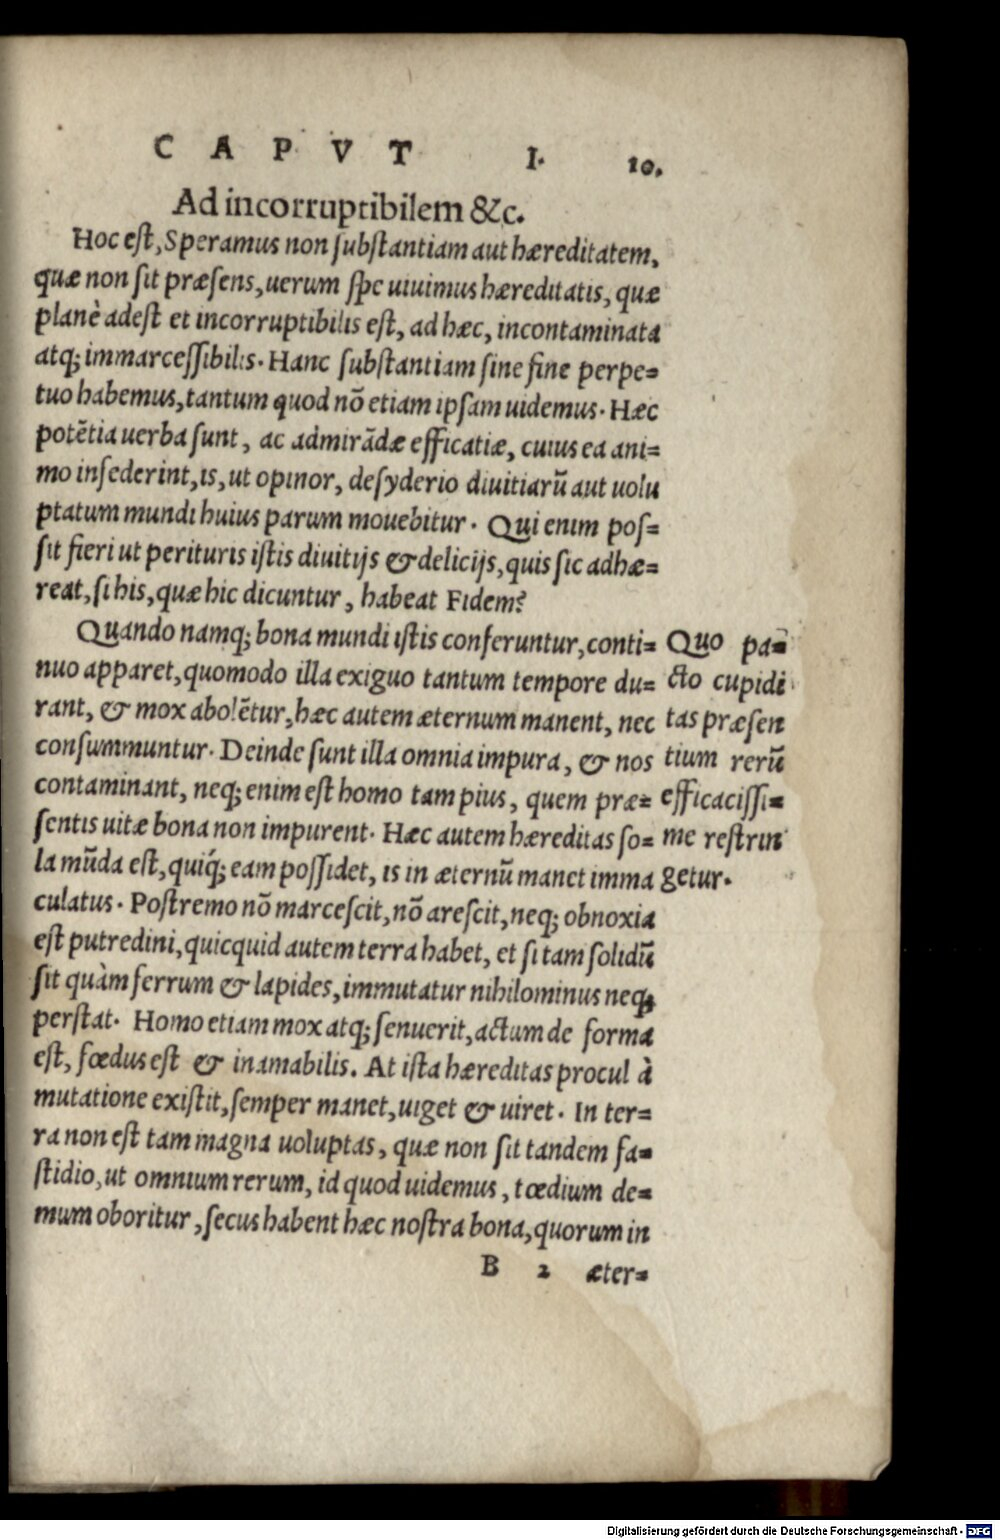 CAPVT I. 10.
Ad incorruptibilem &c.
Hoc eſt, Speramus non ſubſtantiam aut hæreditatem,
quæ non ſit præſens, uerum ſpe uiuimus hæreditatis, quæ
planè adeſt et incorruptibilis eſt, ad hæc, incontaminata
atq; immarceſſibilis. Hanc ſubſtantiam ſine fine perpe=
tuo habemus, tantum quod nõ etiam ipſam uidemus. Hæc
potẽtia uerba ſunt, ac admirãdæ efficatiæ, cuius ea ani=
mo inſederint, is, ut opinor, deſyderio diuitiarũ aut uolu
ptatum mundi huius parum mouebitur. Qui enim poſ=
ſit fieri ut perituris iſtis diuitijs & delicijs, quis ſic adhæ=
reat, ſi his, quæ hic dicuntur, habeat Fidem?
Quando namq; bona mundi iſtis conferuntur, conti=
nuo apparet, quomodo illa exiguo tantum tempore du=
rant, & mox abolẽtur, hæc autem æternum manent, nec
conſummuntur. Deinde ſunt illa omnia impura, & nos
contaminant, neq; enim eſt homo tam pius, quem præ=
ſentis uitæ bona non impurent. Hæc autem hæreditas ſo=
la mũda eſt, quiq́; eam poſſidet, is in æternũ manet imma
culatus. Poſtremo nõ marceſcit, nõ areſcit, neq; obnoxia
eſt putredini, quicquid autem terra habet, et ſi tam ſolidũ
ſit quàm ferrum & lapides, immutatur nihilominus neq;
perſtat. Homo etiam mox atq; ſenuerit, actum de forma
eſt, fœdus eſt & inamabilis. At iſta hæreditas procul à
mutatione exiſtit, ſemper manet, uiget & uiret. In ter=
ra non eſt tam magna uoluptas, quæ non ſit tandem fa=
ſtidio, ut omnium rerum, id quod uidemus, tœdium de=
mum oboritur, ſecus habent hæc noſtra bona, quorum in
Quo pa=
cto cupidi
tas præſen
tium rerũ
efficaciſſi=
me reſtrin
getur.
B 2 æter=
Digitalisierung gefördert durch die Deutsche Forschungsgemeinschaft - DFG